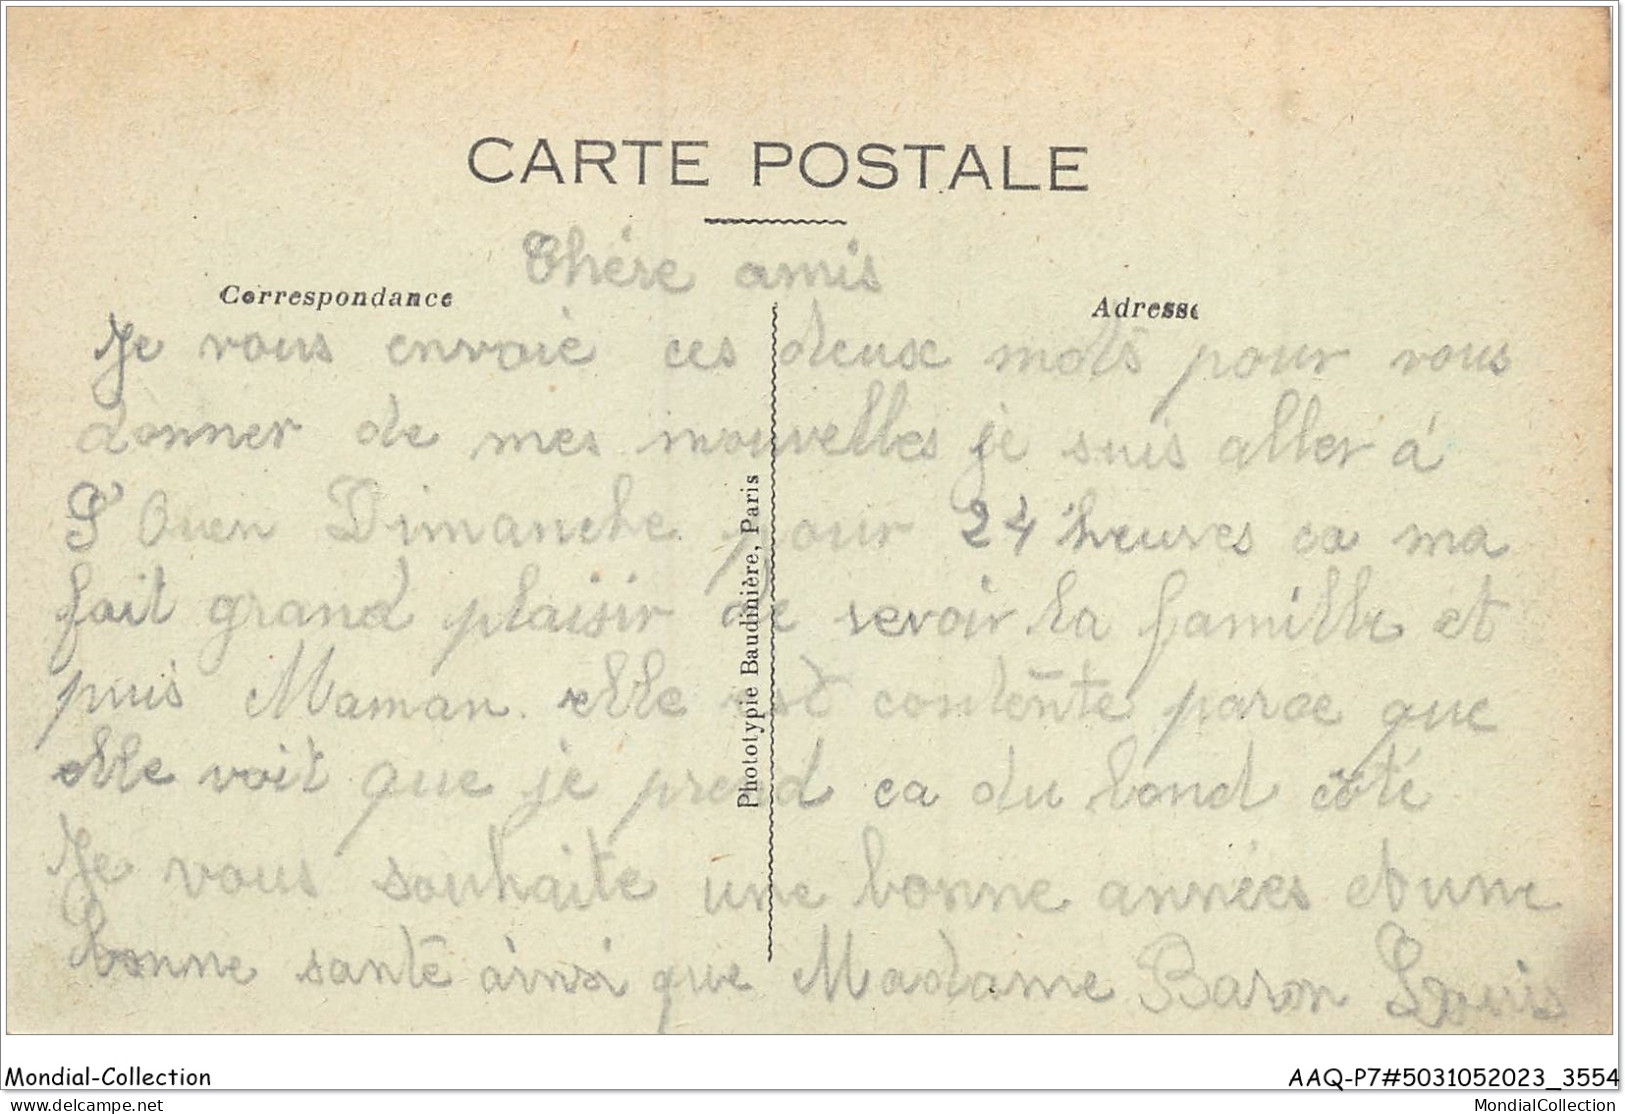 CARTE POSTALE
Chére amis
Correspondance
Adresse
Je vous envoie ces deux mots pour vous
donner de mes nouvelles je suis aller á
St Ouen Dimanche pour 24 heures ca ma
fait grand plaisir de revoir la famille et
puis Maman elle est contente parce que
elle voit que je prend ca du bond côté
Je vous souhaite une bonne années et une
bonne santé ainsi que Madame Baron Louis
Phototypie Baudinière, Paris
Mondial-Collection
AAQ-P7#5031052023_3554
picture delcampe.net
MondialCollection